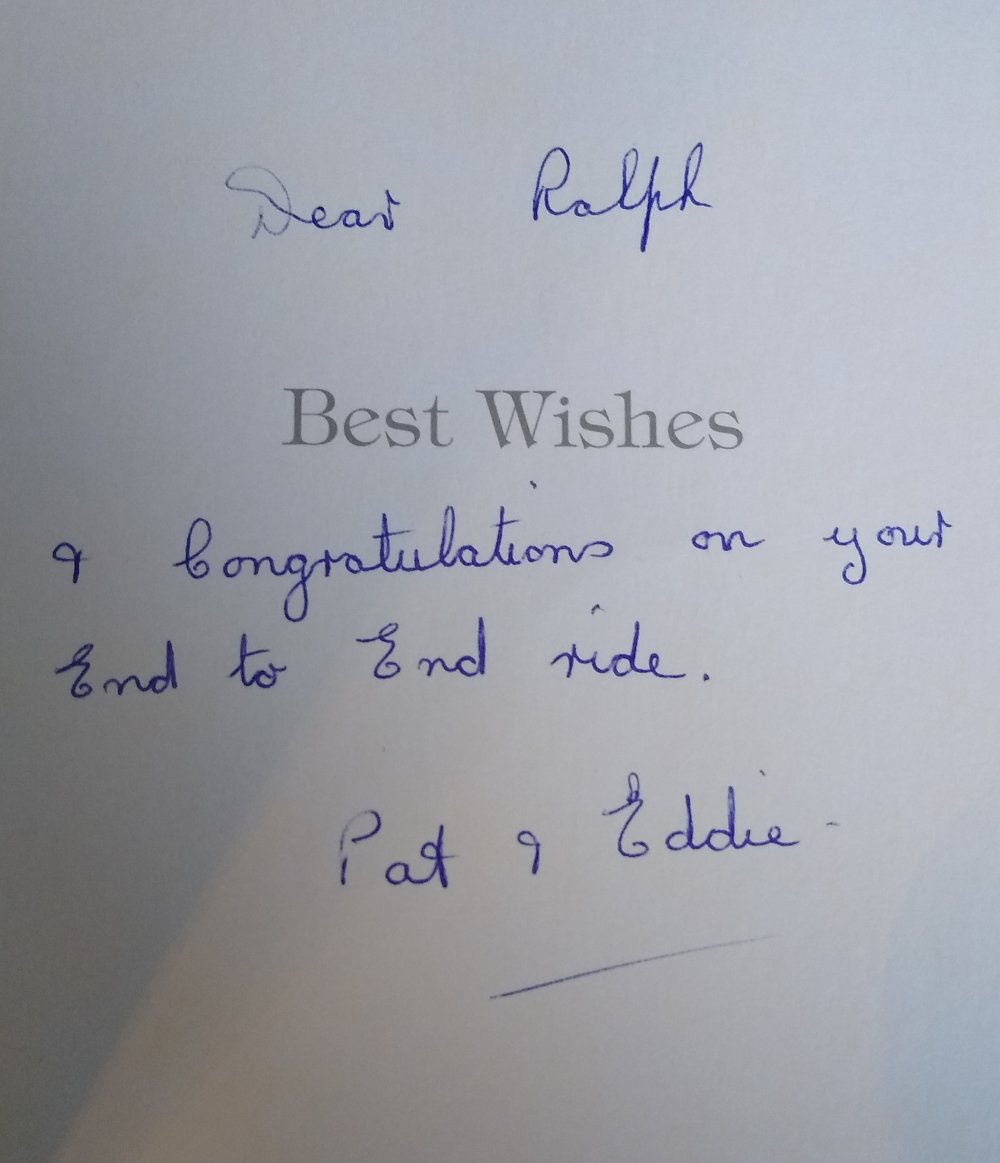 Dear Ralph
Best Wishes
& Congratulations on your
End to End ride.
Pat & Eddie